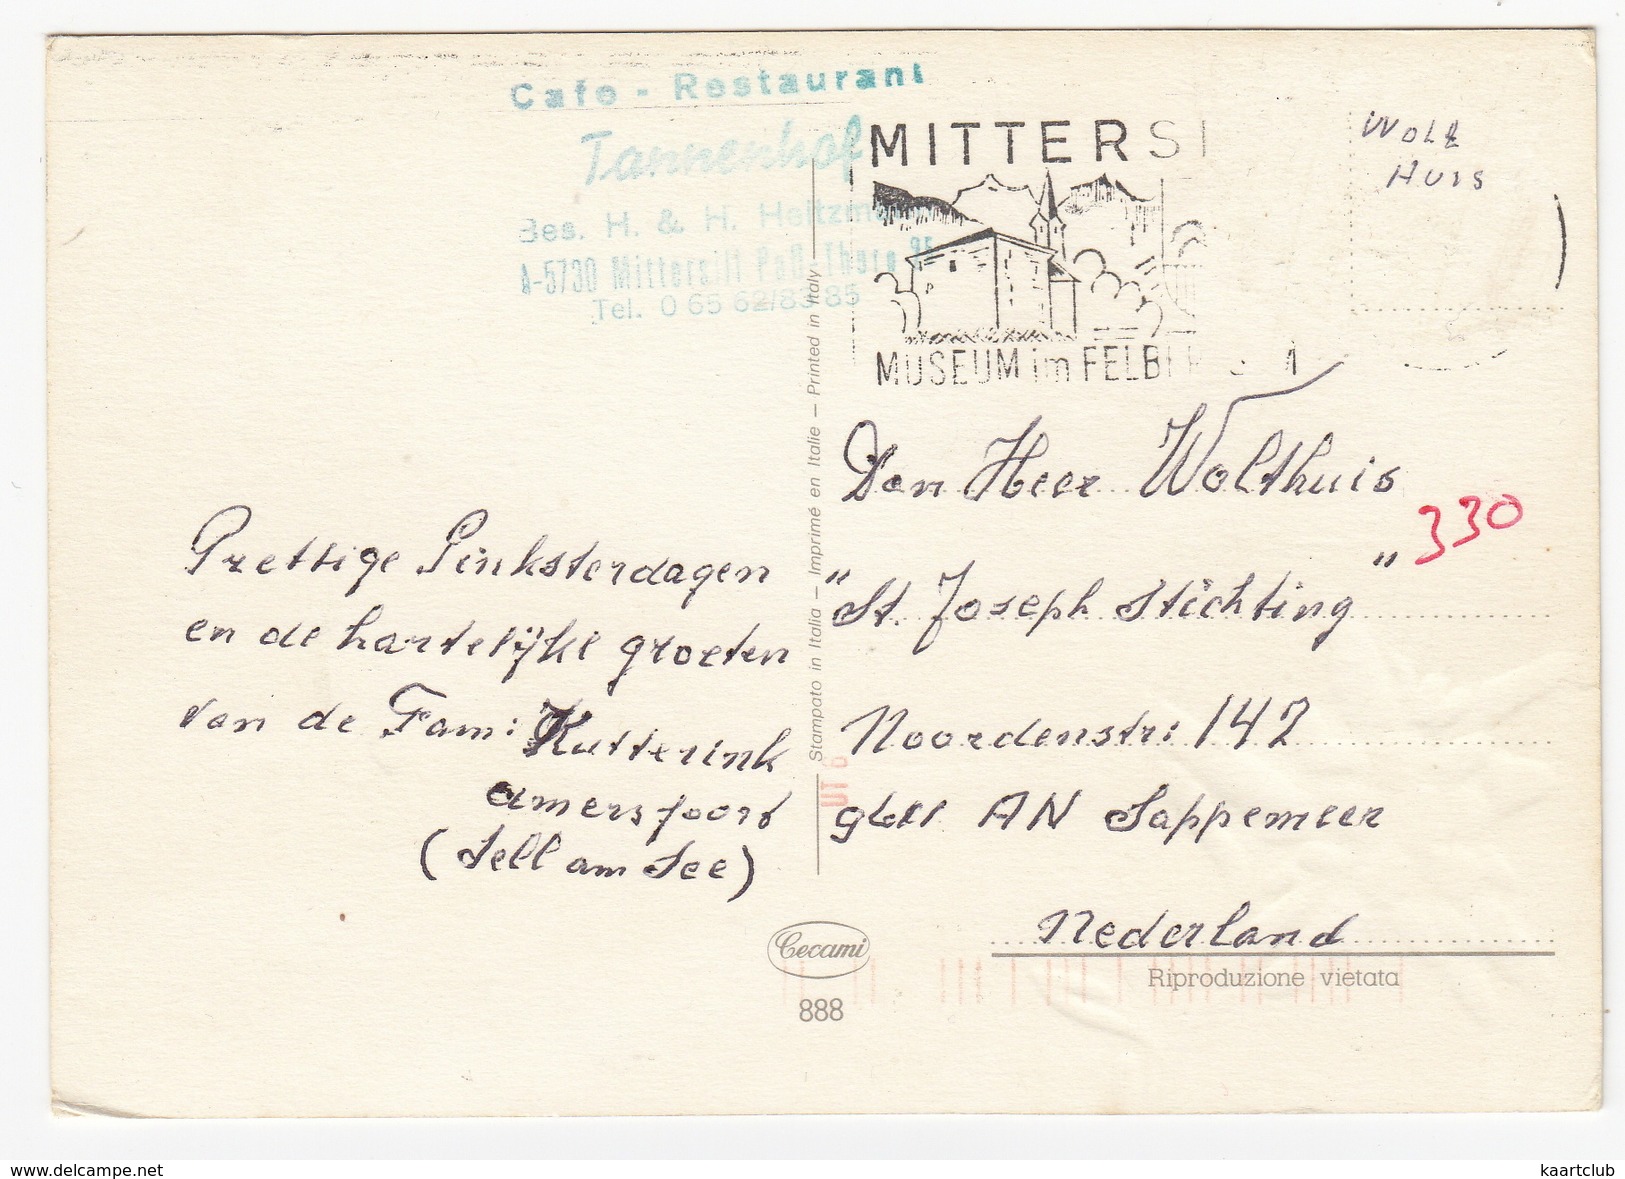 Cafe - Restaurant
Tannenhof
Bes. H. & H.
A-5730 Mittersill Paß-Thurn
Tel. 0 65 62/83 85
MITTERSI
MUSEUM im FELBER
WOLT
HUIS
Den Heer Wolthuis
330
"St. Joseph Stichting"
Noordenstr: 142
9611 AN Sappemeer
Nederland
Prettige Pinksterdagen
en de hartelijke groeten
van de Fam: Kutterink
Amersfoort
(Sell am See)
Stampato in Italia — Imprimé en Italie — Printed in Italy
Cecami
888
Riproduzione vietata
www.delcampe.net
kaartclub